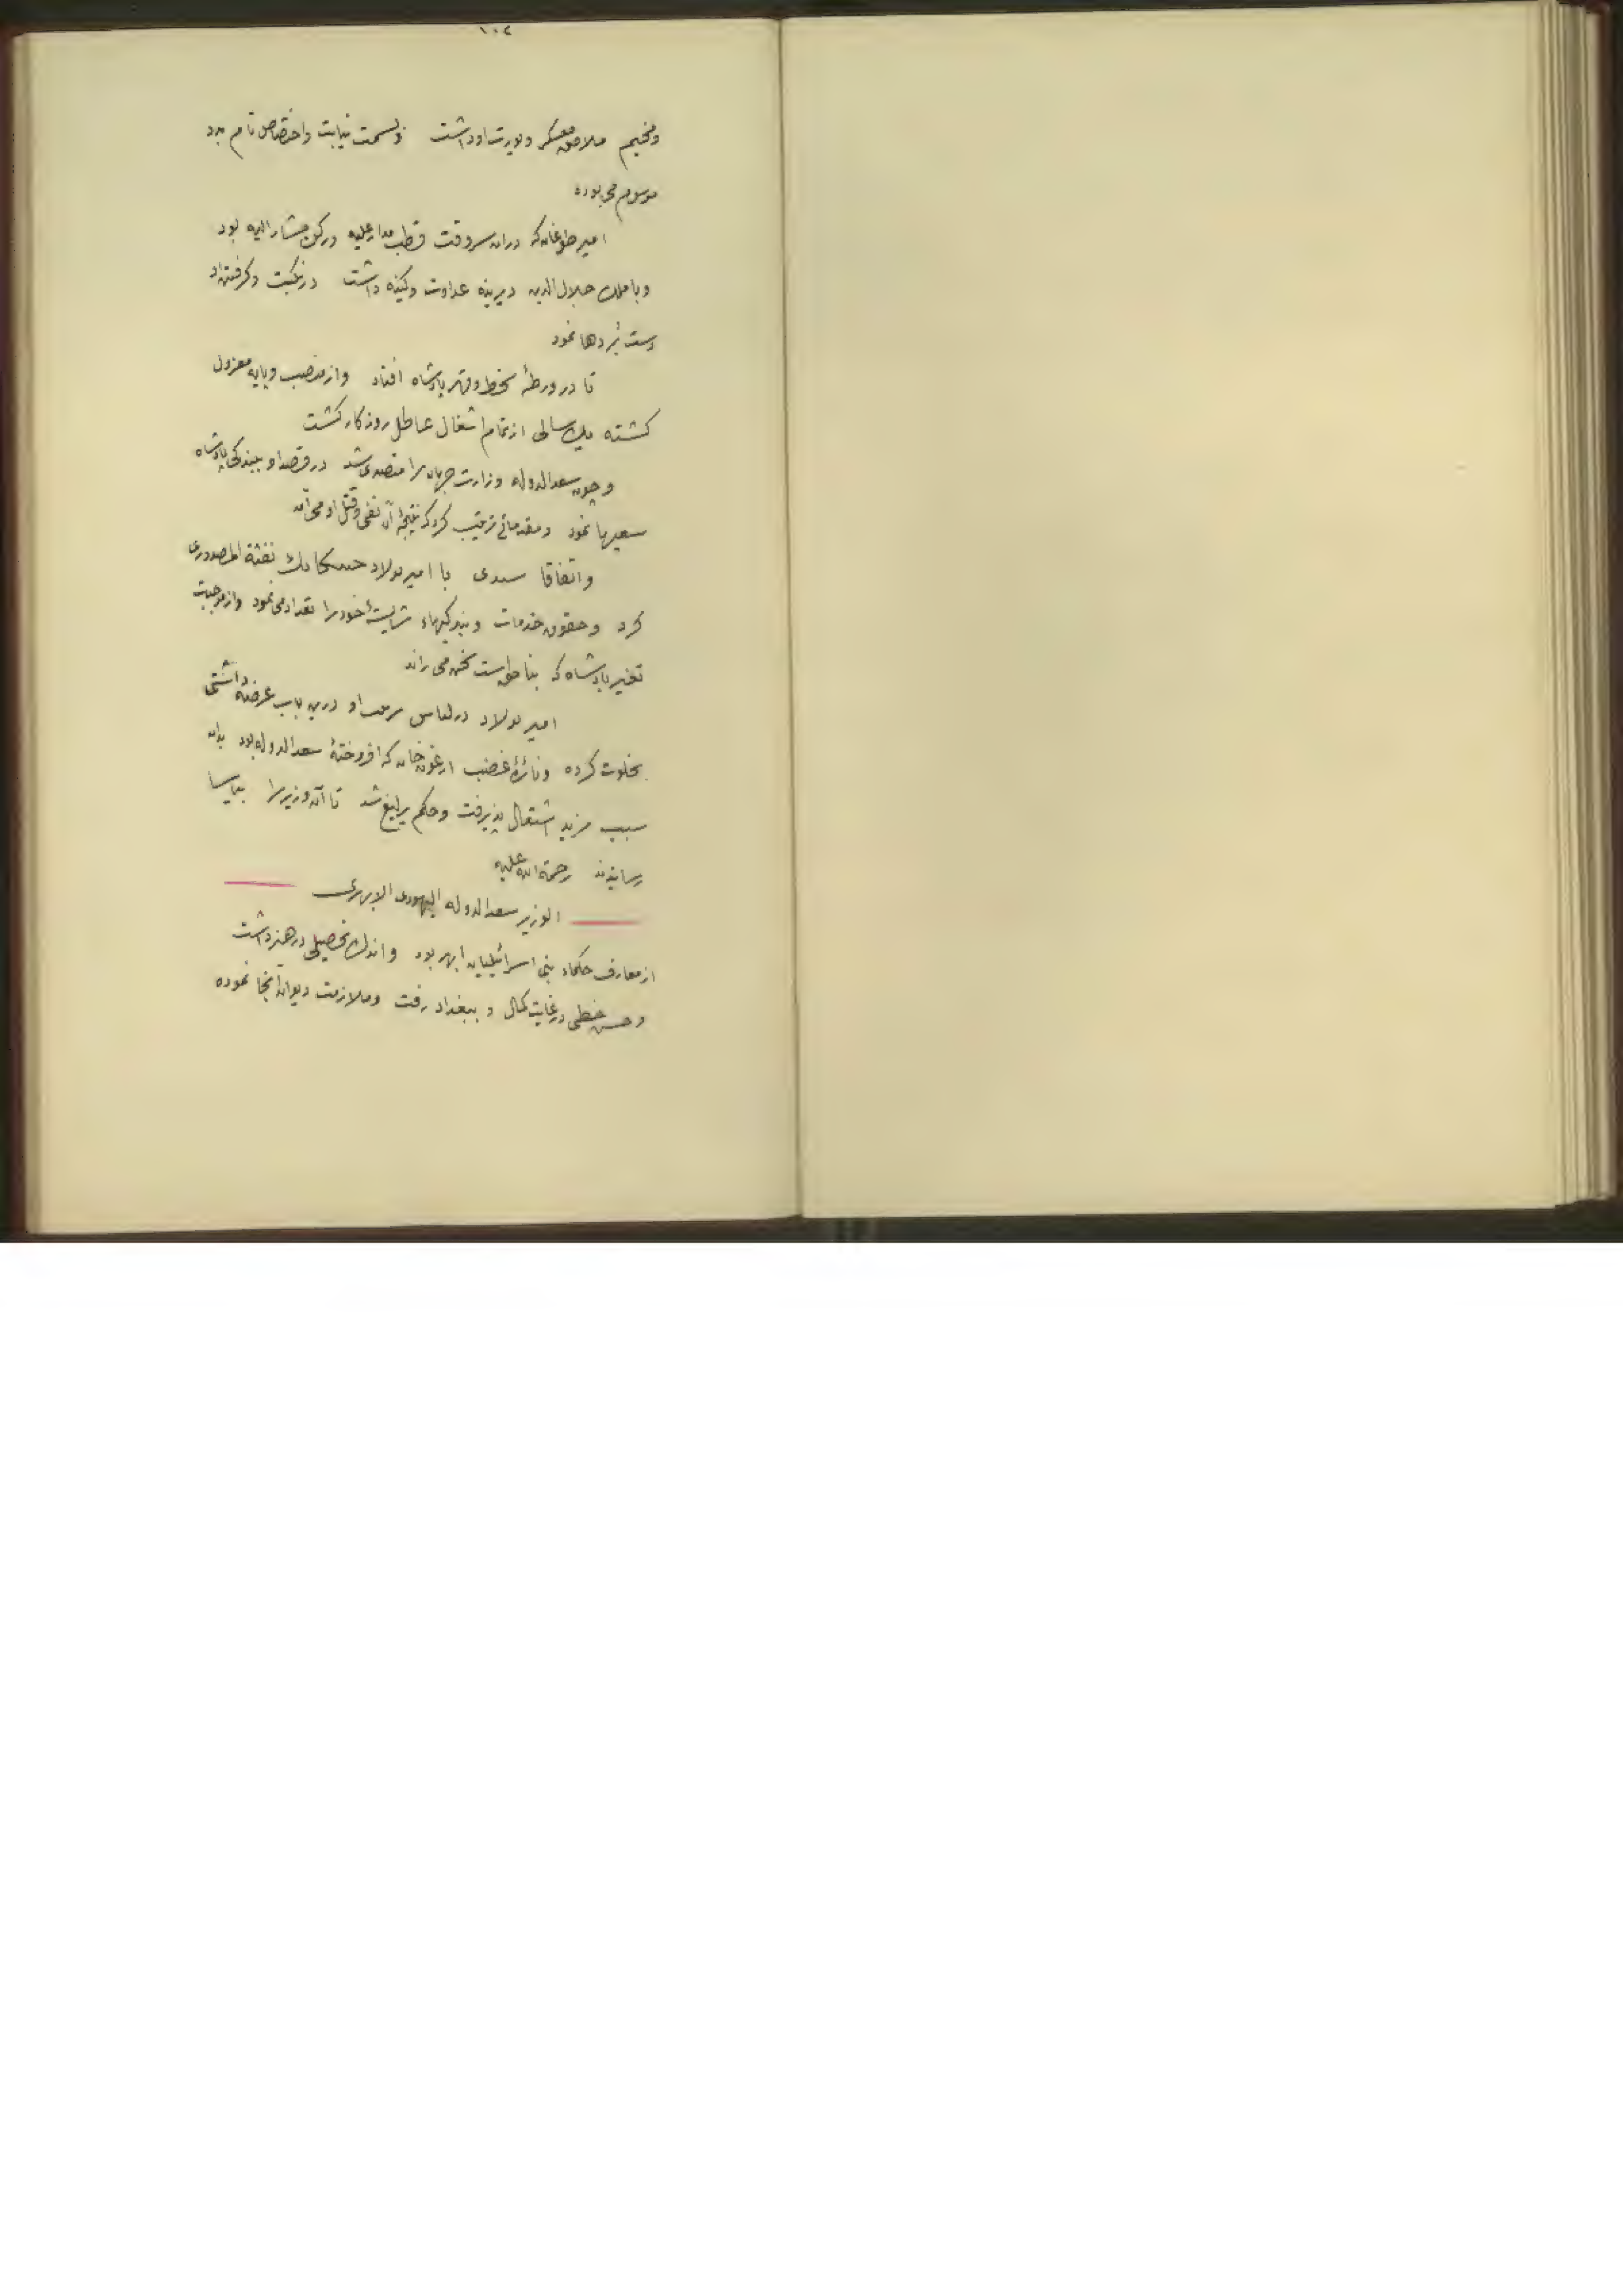 ۱۰۲
ومخیم ملاصق معسکر ویورت او داشت وبسمت نیابت واختصاص تام
موسوم می بوده
امیر طوغان که دران سروقت قطب مدار علیه ورکن مشار الیه بود
وبا ملک جلال الدین دیرینه عداوت وکینه داشت در نکبت وگرفتن او
دست بردها نمود
تا در ورطهٔ سخط وقهر پادشاه افتاد واز منصب وپایه معزول
گشته یک سالی از تمام اشغال عاطل روزگار گشت
وچون سعدالدوله وزارت جهان را متصدی شد در قصد او ببندگی پادشاه
سعیها نمود ومقدماتی ترتیب کرد که نتیجهٔ آن نفی وقتل او می آمد
واتفاقا سیدی با امیر پولاد نفثة المصدوری
کرد وحقوق خدمات وبندگیهاء شایستهٔ خود را تعداد می نمود واز موجبات
تغیر پادشاه که بناخواست سخن می راند
امیر پولاد در لباس او درین باب عرضه داشتی
بخلوت کرده ونائرهٔ غضب ارغون خان که افروختهٔ سعدالدوله بود بدان
سبب مزید اشتعال پذیرفت وحکم یرلیغ شد تا آن وزیر را بیاسا
رسانیدند رحمة الله علیه
الوزیر سعدالدوله الیهودی الابهری
از معارف حکماء بنی اسرائیلیان ابهر بود واندک تحصیلی در هنر داشت
وحسن خطی در غایت کمال و ببغداد رفت وملازمت دیوان آنجا نموده